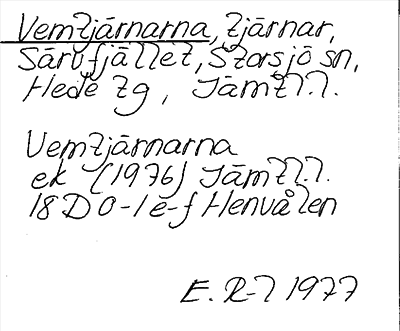 Vemtjärnarna, tjärnar,
Särvfjället, Storsjö sn,
Hede tg, Jämtl.l.
Vemtjärnarna
ek (1976) Jämtl.l.
18D 0-1 e-f Henvålen
E. R-l 1977